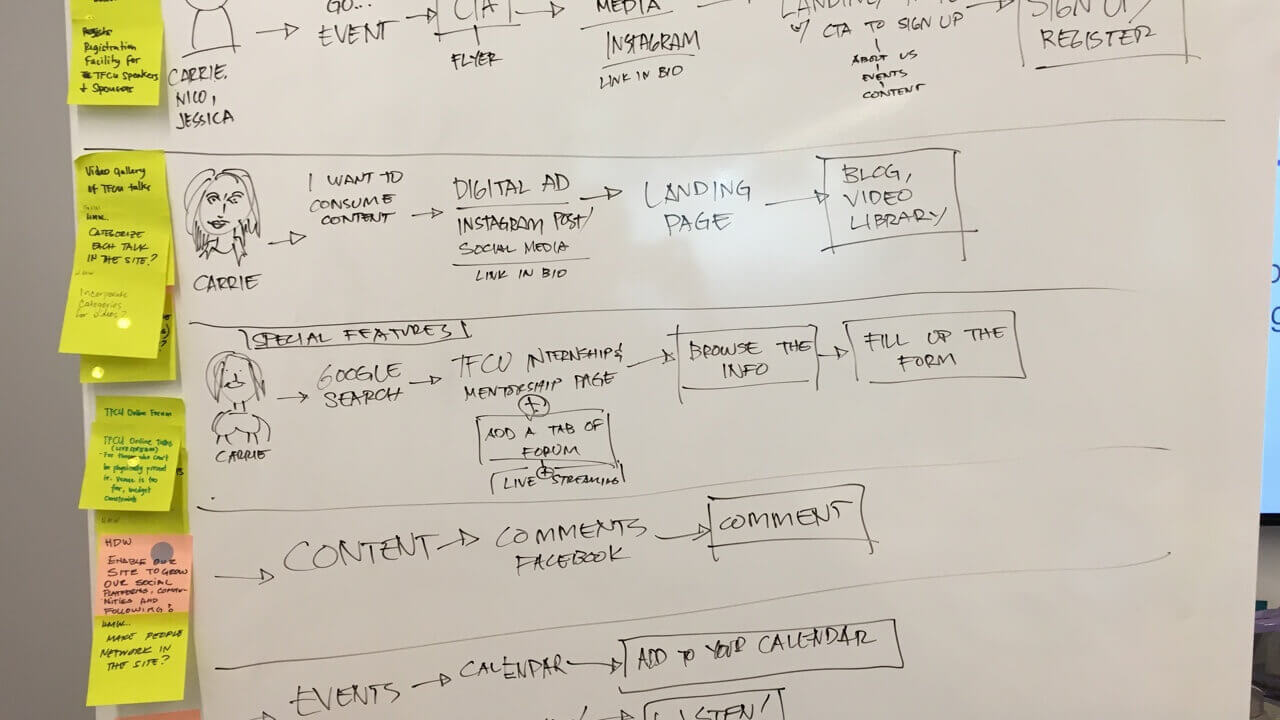 Registration
Facility for
TFCU Speakers
+ Sponsors
CARRIE,
NICO,
JESSICA
GO...
EVENT
CTA
FLYER
MEDIA
INSTAGRAM
LINK IN BIO
W/ CTA TO SIGN UP
ABOUT US
EVENTS
CONTENT
SIGN UP/
REGISTER
Video Gallery
of TFCU talks
HMW...
CATEGORIZE
EACH TALK
IN THE SITE?
Incorporate
Categories
for videos?
CARRIE
I WANT TO
CONSUME
CONTENT
DIGITAL AD
INSTAGRAM POST/
SOCIAL MEDIA
LINK IN BIO
LANDING
PAGE
BLOG,
VIDEO
LIBRARY
SPECIAL FEATURES
CARRIE
GOOGLE
SEARCH
TFCU INTERNSHIP &
MENTORSHIP PAGE
+
ADD A TAB OF
FORUM
+
LIVE STREAMING
BROWSE THE
INFO
FILL UP THE
FORM
TFCU Online Forum
TFCU Online Talks
(LIVESTREAM)
- For those who can't
be physically present
ie. venue is too
far, budget
constraints
HMW
HDW
ENABLE OUR
SITE TO GROW
OUR SOCIAL
PLATFORMS, COMMU-
NITIES AND
FOLLOWING?
CONTENT
COMMENTS
FACEBOOK
COMMENT
HMW...
MAKE PEOPLE
NETWORK IN
THE SITE?
EVENTS
CALENDAR
ADD TO YOUR CALENDAR
LISTEN/